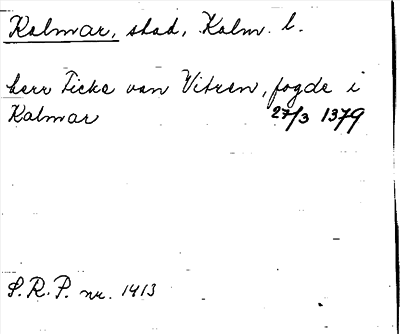 Kalmar, stad, Kalm. l.
herr Ficke van Vitzen, fogde i
Kalmar 27/3 1379
S.R.P. nr. 1413